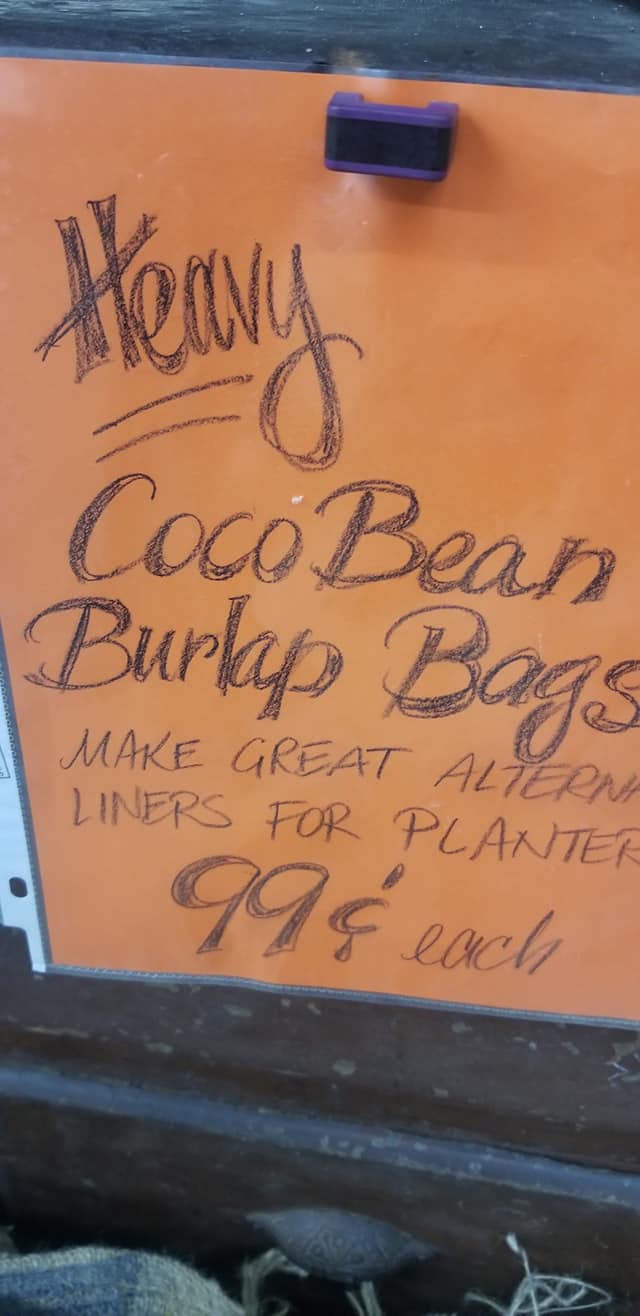 Heavy
Coco Bean
Burlap Bags
MAKE GREAT ALTERNA
LINERS FOR PLANTER
99¢ each